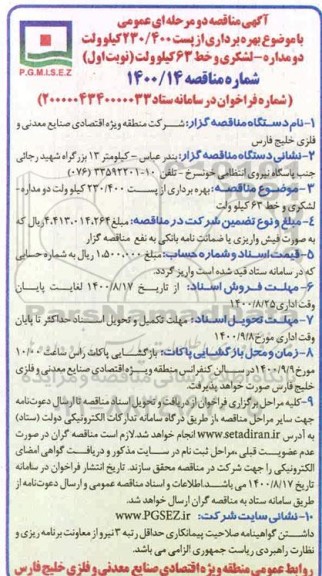 آگهی مناقصه دو مرحله ای عمومی
با موضوع بهره برداری از پست ۲۳۰/۴۰۰ کیلو ولت
دو مداره-لشکری و خط ۶۳ کیلو ولت (نوبت اول)
شماره مناقصه ۱۴۰۰/۱۴
(شماره فراخوان در سامانه ستاد ۲۰۰۰۰۰۴۳۴۰۰۰۰۳۳)
P.G.M.I.S.E.Z
۱-نام دستگاه مناقصه گزار: شرکت منطقه ویژه اقتصادی صنایع معدنی و
فلزی خلیج فارس
۲-نشانی دستگاه مناقصه گزار: بندر عباس - کیلومتر ۱۳ بزرگراه شهید رجائی
جنب پاسگاه نیروی انتظامی خونسرخ - تلفن ۱۰-۳۳۵۹۲۲۰۱ (۰۷۶)
۳-موضوع مناقصه: بهره برداری از پست ۲۳۰/۴۰۰ کیلو ولت دو مداره -
لشکری و خط ۶۳ کیلو ولت
۴-مبلغ و نوع تضمین شرکت در مناقصه: مبلغ ۴،۴۱۳،۰۱۴،۲۶۴ ریال که
به صورت فیش واریزی یا ضمانت نامه بانکی به نفع مناقصه گزار
۵-قیمت اسناد و شماره حساب: مبلغ ۱،۵۰۰،۰۰۰ ریال به شماره حسابی
که در سامانه ستاد قید شده است واریز گردد.
۶-مهلت فروش اسناد: از تاریخ ۱۴۰۰/۸/۱۷ لغایت پایان
وقت اداری ۱۴۰۰/۸/۲۵
۷-مهلت تحویل اسناد: مهلت تکمیل و تحویل اسناد حداکثر تا پایان
وقت اداری مورخ ۱۴۰۰/۹/۸
۸-زمان و محل بازگشایی پاکات: بازگشایی پاکات راس ساعت ۱۰/۰۰
مورخ ۱۴۰۰/۹/۹ در سالن کنفرانس منطقه ویژه اقتصادی صنایع معدنی و فلزی
خلیج فارس صورت خواهد پذیرفت.
۹-کلیه مراحل برگزاری فراخوان از دریافت و تحویل اسناد مناقصه تا ارسال دعوت‌نامه
جهت سایر مراحل مناقصه، از طریق درگاه سامانه تدارکات الکترونیکی دولت (ستاد)
به آدرس www.setadiran.ir انجام خواهد شد. لازم است مناقصه گران در صورت
عدم عضویت قبلی، مراحل ثبت نام در سایت مذکور و دریافت گواهی امضای
الکترونیکی را جهت شرکت در مناقصه محقق سازند. تاریخ انتشار فراخوان در سامانه
تاریخ ۱۴۰۰/۸/۱۷ می باشد. اطلاعات و اسناد مناقصه عمومی و ارسال دعوت‌نامه از
طریق سامانه ستاد به مناقصه گران ارسال خواهد شد.
۱۰-نشانی سایت شرکت: www.PGSEZ.ir
داشتن گواهینامه صلاحیت پیمانکاری حداقل رتبه ۳ نیرو از معاونت برنامه ریزی و
نظارت راهبردی ریاست جمهوری الزامی می باشد.
روابط عمومی منطقه ویژه اقتصادی صنایع معدنی و فلزی خلیج فارس